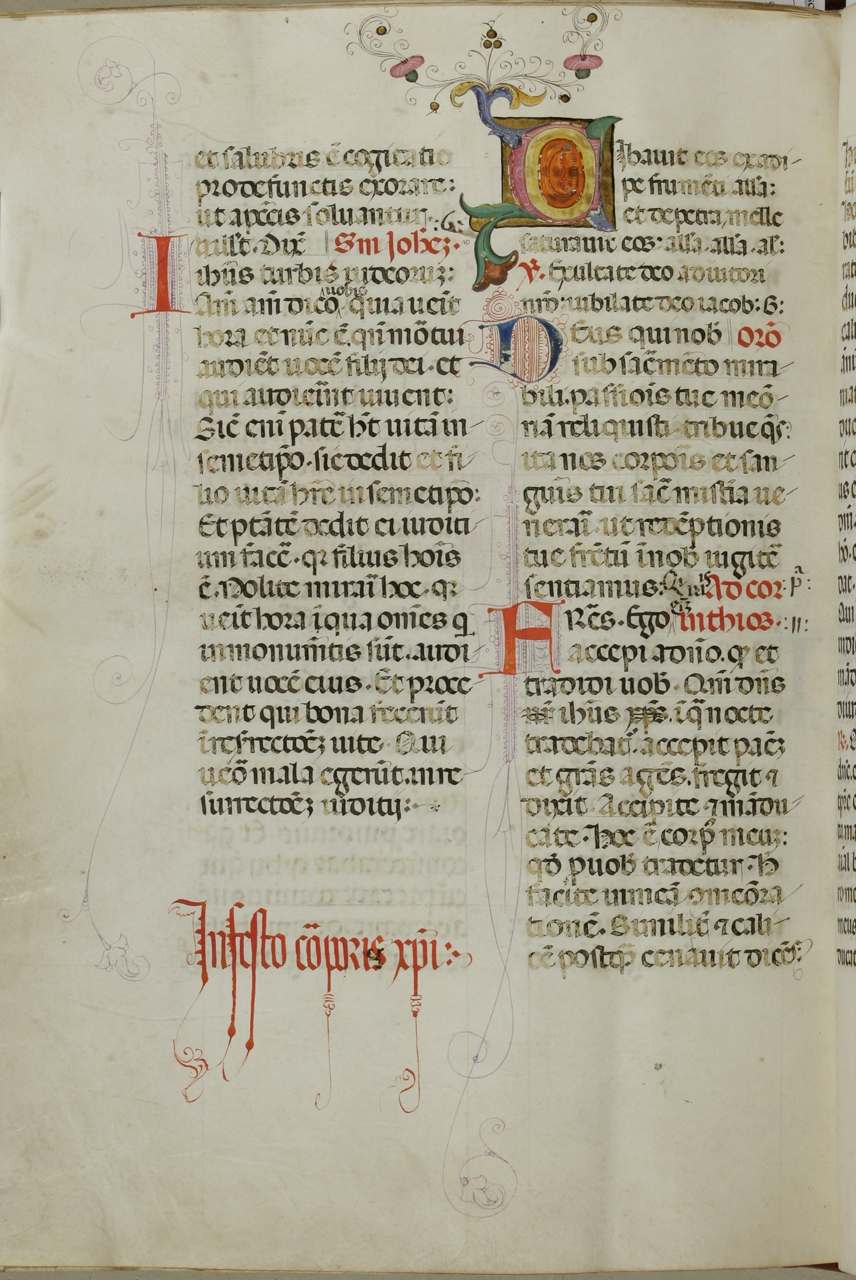 et salubris ē cogitatio
pro defunctis exorare:
ut a pctis soluantur. ·6·
In illo t. Dix̄ Sm̄ Joħez·
ihūs turbis iudeoruz:
Am̄ am̄ dico uobis quia ueīt
hora et nūc ē. qn̄ mōtui
audiēt uocē filij dei· et
qui audierīnt uiuent:
Sicē eni patē ħt uitā in
semetip̄o· sic dedit et fi
lio uitā hr̄e in semetipo:
Et ptātē dedit ei iudici
um facē· q͛ filius hoīs
ē. Nolite mirari hoc· q͛
ueīt hora ī qua omīes q̄
in monumētis sūt. audi
ent uocē eius· Et proce
dent qui bona fecerūt
ī resrectōeʒ uite· Qui
ueō mala egerūt. in re
surrectōeʒ iuditij:
In festo cōporis xp̄i:
Cibauit eos ex adi
pe frumēti alla:
et de petra melle
saturauit eos: alla. alla. al:
℣. Exultate deo adiutori
nr̄o: iubilate deo iacob: G:
Deus qui nob Orō
sub sac̄meto mira
bili. passiois tue meō
riā reliquisti· tribue q̄s:
ita nos corpois et san
guis tui sac̄ mistia ue
nerari ut redēptionis
tue fr̄ctū ī nob iugitē
sentiamus: Qui Ad cor· p̄:
FRēs· Ego inthios· :ıı:
accepi a dn̄o. q͛ et
tradidi uob· Qm̄ dn̄s
ihūs ī q̄ nocte
tradebat̄. accepit paēʒ
et gr̄as agēs. fregit ⁊
dixit Accipite ⁊ mādu
cate· Hoc ē corp̄ meuʒ:
qd̄ p uob tradetur· H̄
facite in meā ɔmeōra
tionē. Similit̄ ⁊ cali
cē postq̄ cenauit dicēs: